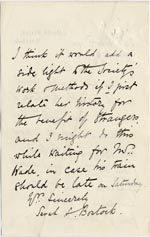 I think it would add a
side light to the Society's
work & methods if I just
relate her history for
the benefit of strangers
and I might do this
while waiting for Mr.
Wade, in case his train
should be late on Saturday
Yrs. Sincerely
Bostock.